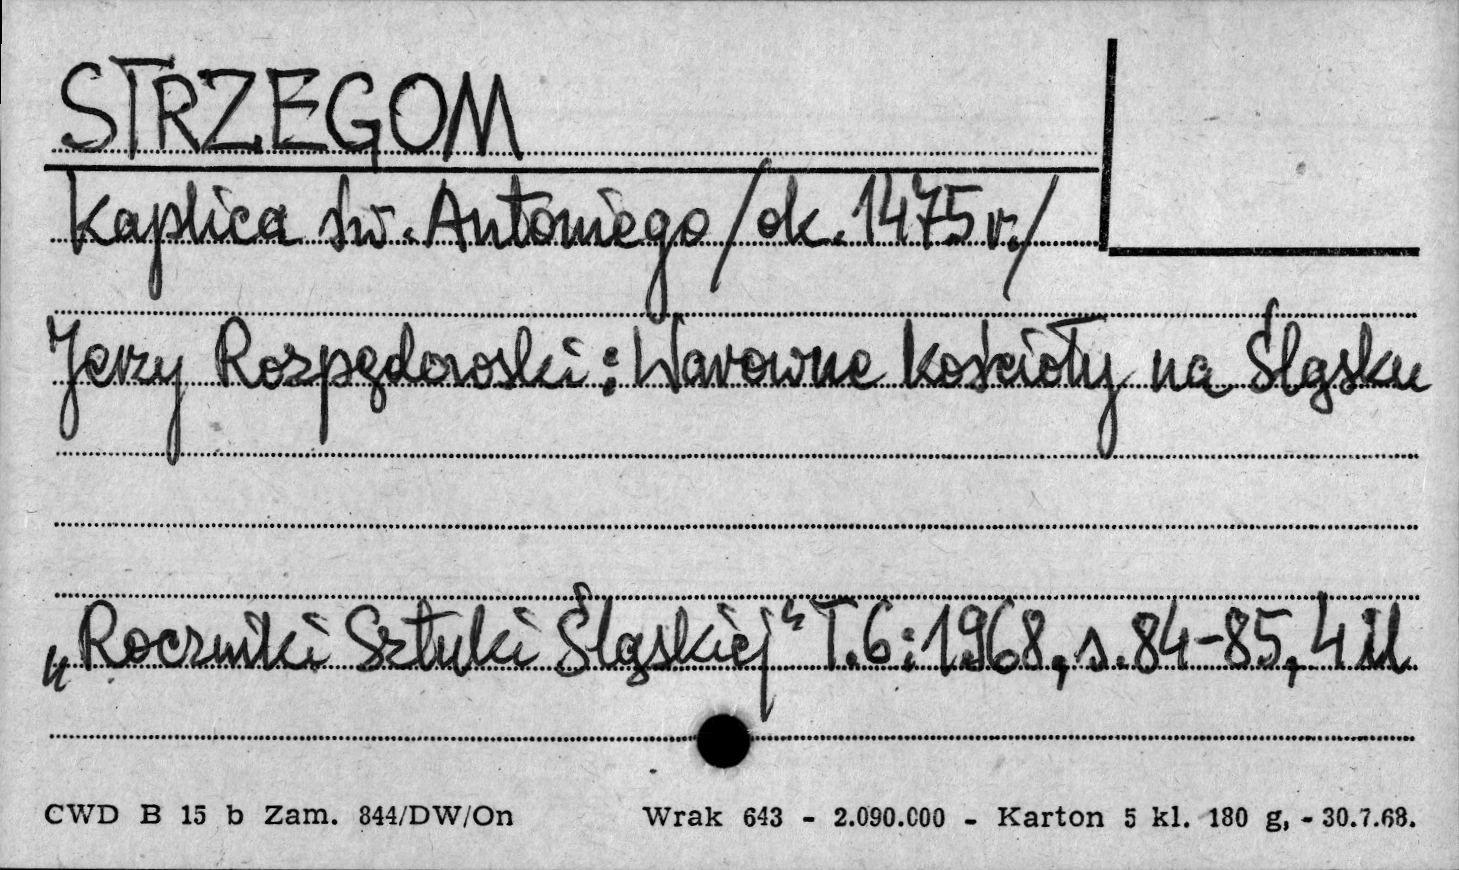 STRZEGOM
Kaplica św. Antoniego /ok. 1475 r./
Jerzy Rozpędowski: Warowne kościoły na Śląsku
„Roczniki Sztuki Śląskiej" T.6: 1968, s. 84-85, 4 il
CWD B 15 b Zam. 844/DW/On Wrak 643 - 2.090.000 - Karton 5 kl. 180 g, - 30.7.68.